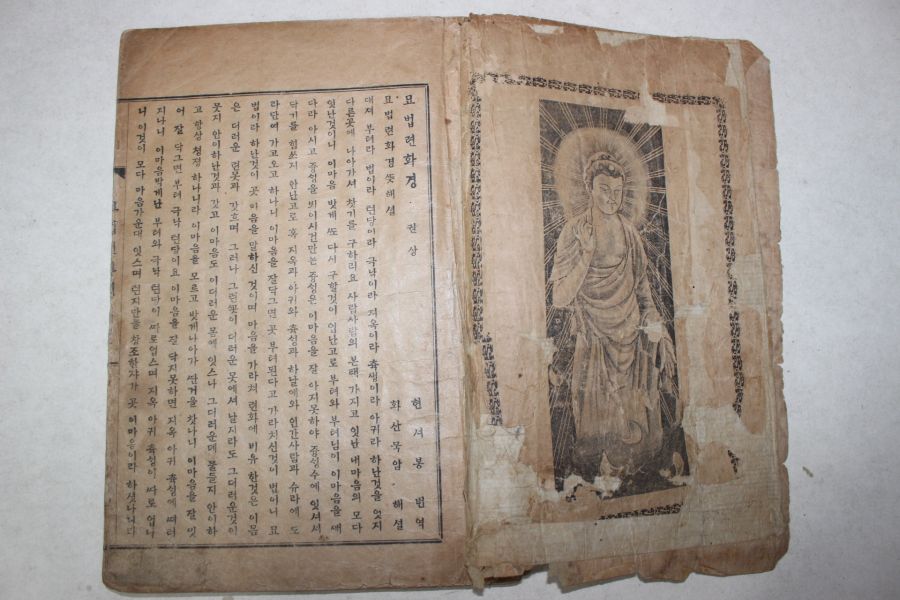 묘법련화경 · 권상
현셔봉 번역
화산묵암 · 해설
묘법련화경 뜻해설
대져 부터라 법이라 련당이라 극낙이라 지옥이라 츅생이라 아귀라 하난것을 엇지
다른곳에 나아가셔 찻기를 구하리요 사람사람의 본태 가지고 잇난 내마음의 모다
잇난것이니 이마음 밧게 또 다시 구할것이 업난고로 부터와 부터님이 이마음을 깨
다라 아시고 즁생을 뵈이시건만는 즁생은 이마음을 잘 아지못하야 즁생수에 잇셔셔
닥기를 힘쓰지 안난고로 혹 지옥과 아귀와 츅생과 하날에와 인간사람과 슈라에 도
라단여 가고오고 하나니 이마음을 잘닥그면 곳 부터된다고 가라치신것이 법이어니 묘
법이라 하난것이 곳 마음을 말하신 것이며 마음을 가라쳐 련화에 비유 한것은 이몸
은 더러운 련못과 갓흐며 그러나 그련꼿이 더러운 못에셔 날지라도 그더러운것이
뭇지 안이하난것과 갓고 이마음도 이더러운 몸에 잇스나 그더러운데 물들지 안이하
고 항상 청졍 하나니라 이마음을 모르고 밧게나아가 딴거을 찻나니 이마음을 잘 밋
어 잘 닥그면 부터 극낙 련당이요 이마음을 잘 닥지못하면 지옥 아귀 츅생에 떠러
지나니 이마음박게난 부터와 극낙 련당이 따로업스며 지옥 아귀 츅생이 따로 업나
니 이것이 모다 마음가운대 잇스며 련지만물 창조한자가 곳 이마음이라 하셧나니다